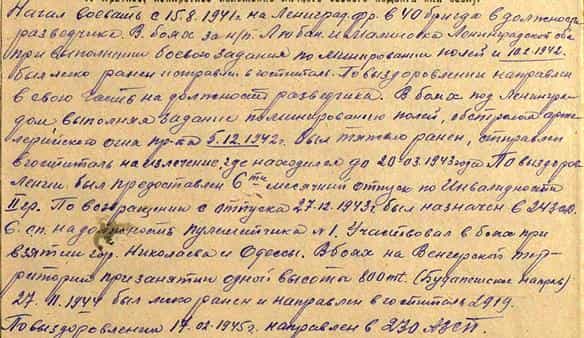 Начал воевать с 15.8.1941г. на Ленинград.фр. в 40 бригаде в должности
разведчика. В боях за н/п. Любань и Малиновка Ленинградской обл
при выполнении боевого задания по минированию полей и 10.2.1942.
был легко ранен и отправлен в госпиталь. По выздоровлении направлен
в свою часть на должность разведчика. В боях под Ленингра-
дом выполняя задание по минированию полей, обстрелом арти-
лерийского огня пр-ка 5.12.1942г. был тяжело ранен, отправлен
в госпиталь на излечение, где находился до 20.03.1943года По выздоров-
лении был предоставлен 6ти месячный отпуск по Инвалидности
II гр. По возвращении с отпуска 27.12.1943г. был назначен в 243
с.п. на должность пулеметчика №1. Участвовал в боях при
взятии гор. Николаева и Одессы. В боях на Венгерской тер-
ритории при занятии одной высоты 800mt. (Будапештск. направ)
27.11.1944 был легко ранен и направлен в госпиталь 2919.
По выздоровлении 17.02.1945г. направлен в 230 АЗСП.